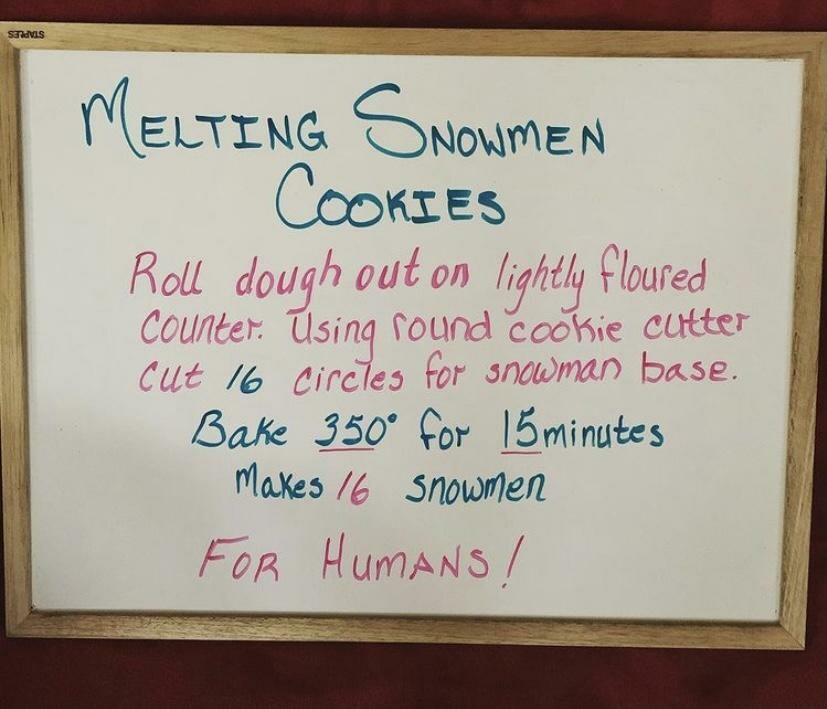 STAPLES
MELTING SNOWMEN
COOKIES
Roll dough out on lightly floured
Counter. Using round cookie cutter
Cut 16 circles for snowman base.
Bake 350° for 15 minutes
Makes 16 snowmen
FOR HUMANS!